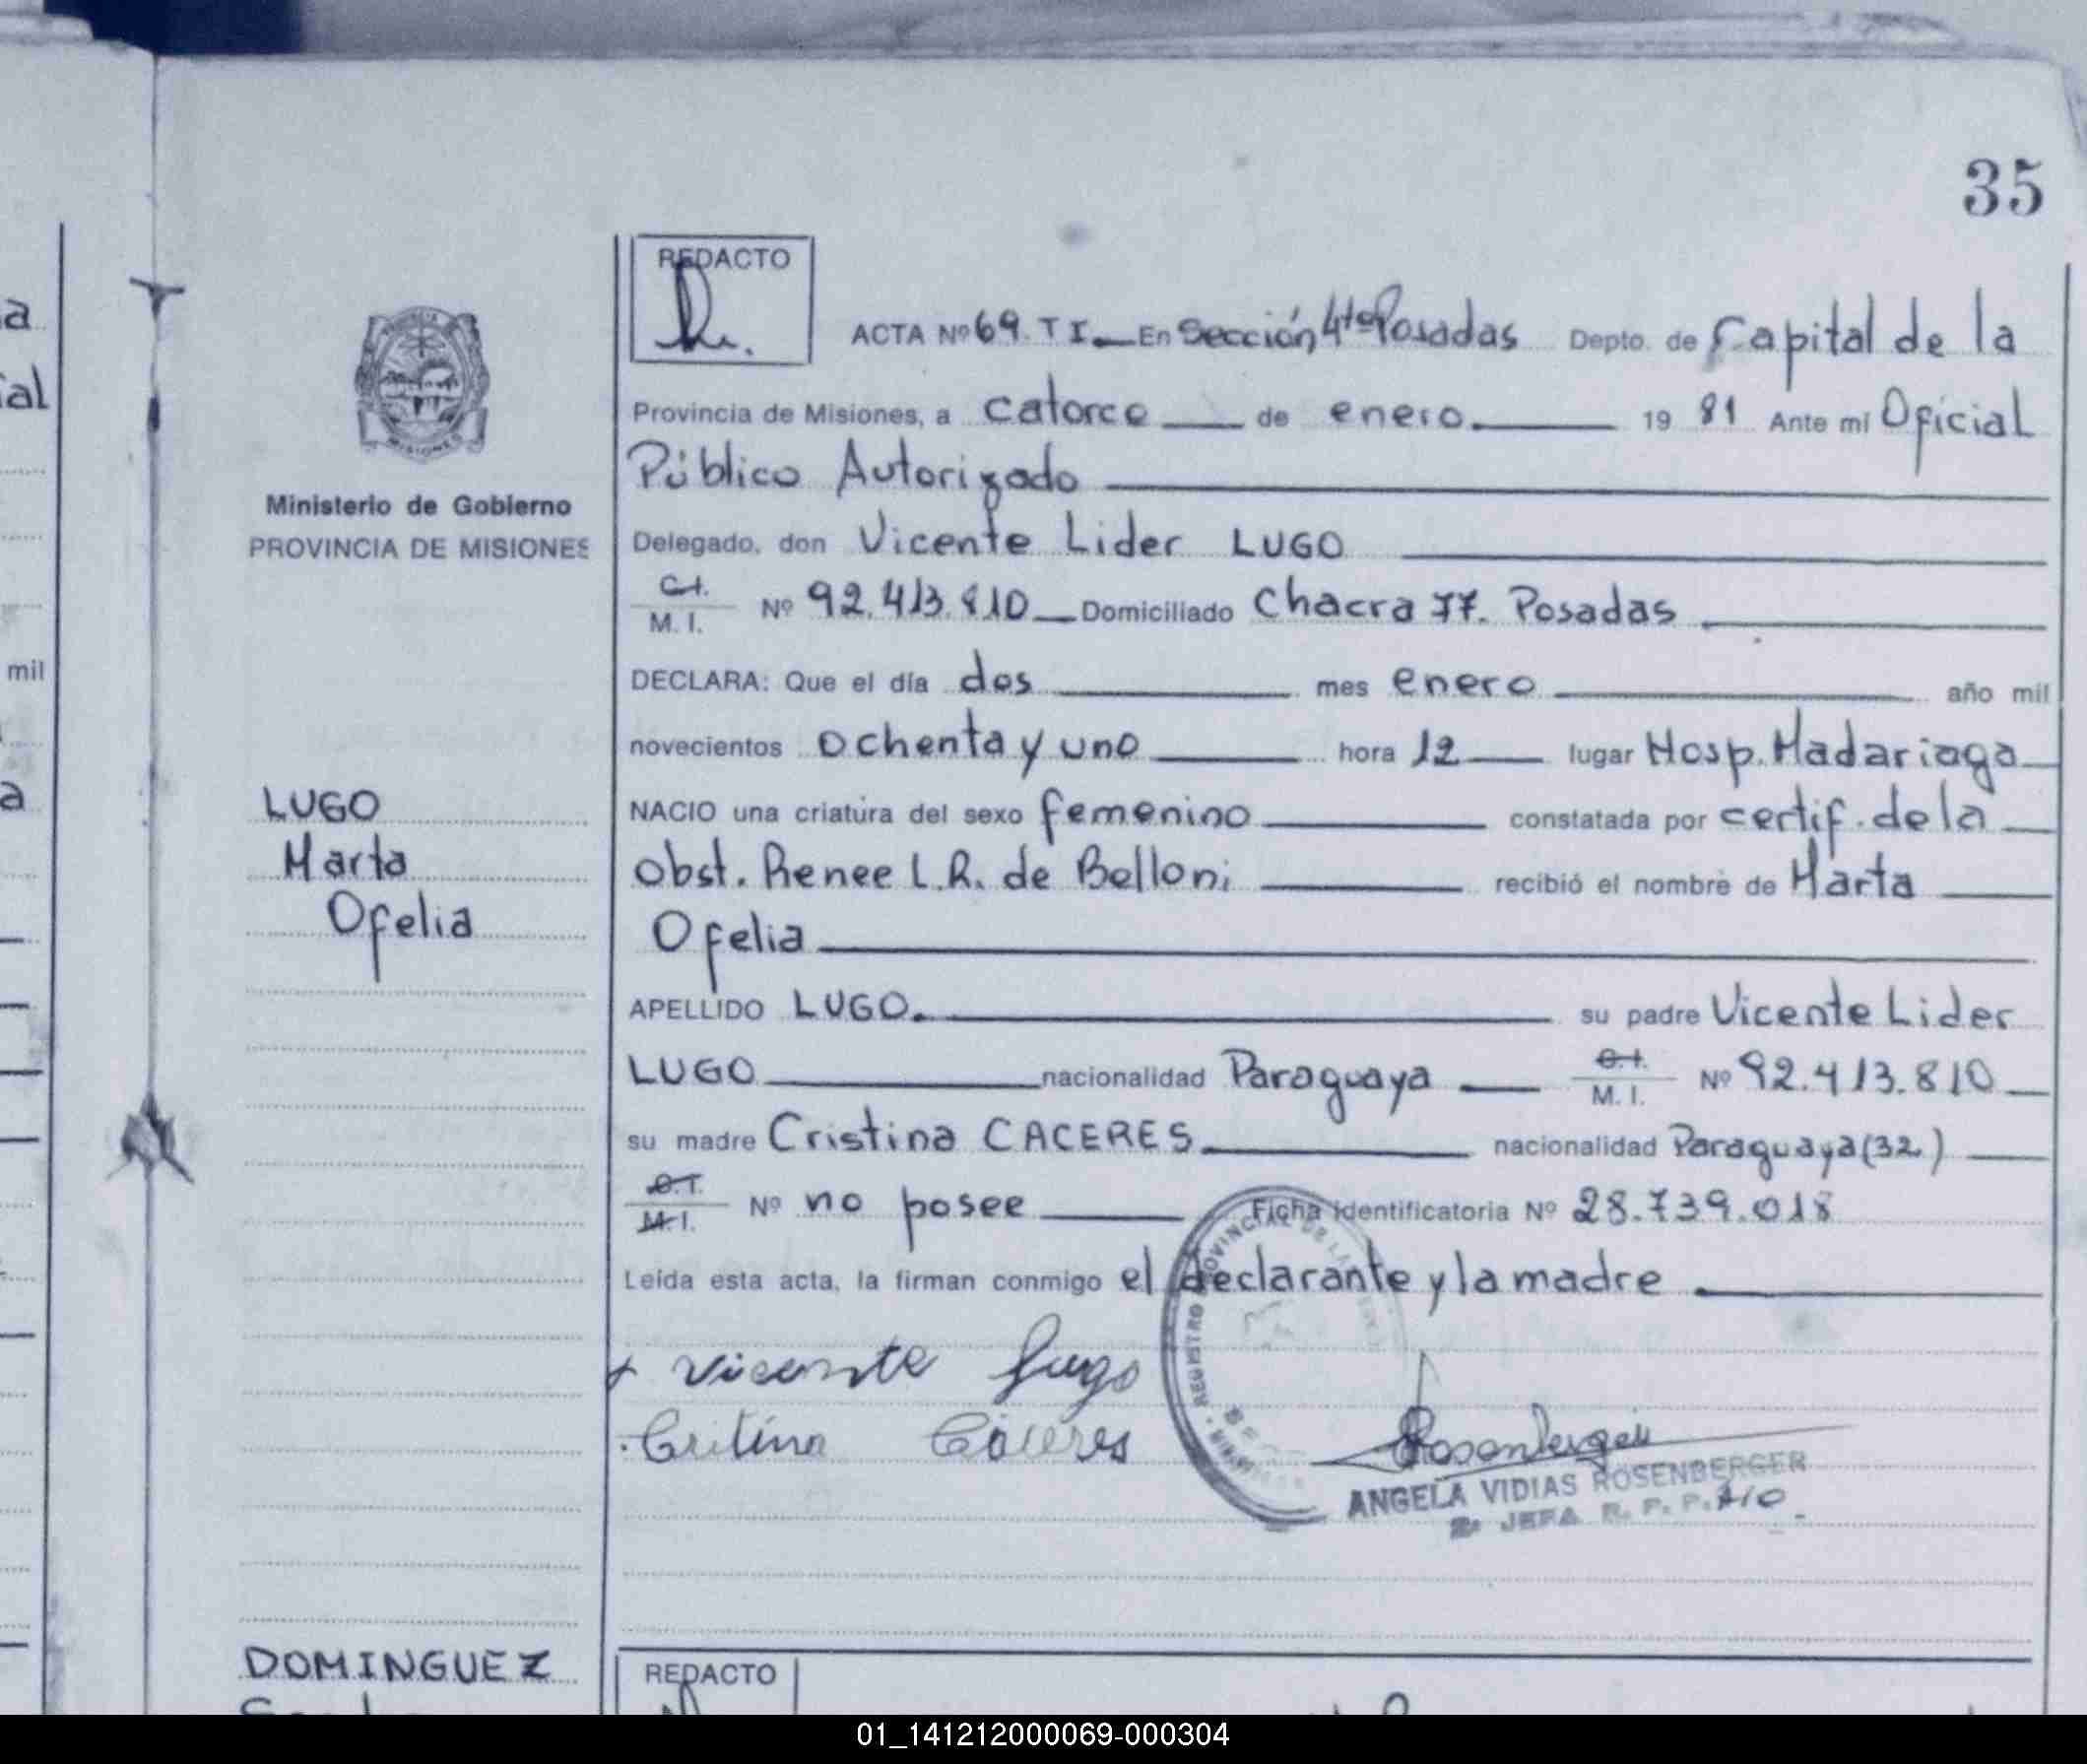 35
REDACTO
ACTA Nº 69. T I. En Sección 4ta Posadas Depto. de Capital de la
Provincia de Misiones, a catorce de enero. 19 81 Ante mí Oficial
Público Autorizado
Ministerio de Gobierno
PROVINCIA DE MISIONES
Delegado, don Vicente Lider LUGO
C.I. M. I. Nº 92.413.810 Domiciliado Chacra 77. Posadas
DECLARA: Que el día dos mes enero año mil
novecientos ochenta y uno hora 12 lugar Hosp. Madariaga
LUGO
Marta
Ofelia
NACIO una criatura del sexo femenino constatada por certif. de la
Obst. Renee L.R. de Belloni recibió el nombre de Marta
Ofelia
APELLIDO LUGO. su padre Vicente Lider
LUGO nacionalidad Paraguaya C.I. M. I. Nº 92.413.810
su madre Cristina CACERES nacionalidad Paraguaya (32)
C.I. M.I. Nº no posee Ficha identificatoria Nº 28.739.018
Leída esta acta, la firman conmigo el declarante y la madre
Vicente Lugo
Critina Cáceres
Rosenberger
ANGELA VIDIAS ROSENBERGER
2a JEFA R. P. P.
DOMINGUEZ
REDACTO
01_141212000069-000304